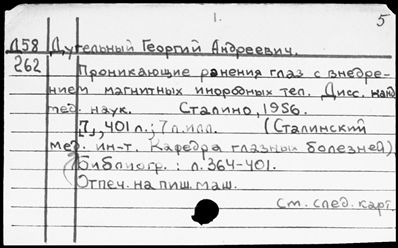 1.
5
Д58 Дугельный Георгий Андреевич.
262 Проникающие ранения глаз с внедре-
нием магнитных инородных тел. Дисс. канд.
мед. наук. Сталино, 1956.
[7], 401 л.; 7 л. илл. (Сталинский
мед. ин-т. Кафедра глазных болезней)
Библиогр.: л. 364-401.
Отпеч. на пиш. маш.
См. след. карт.